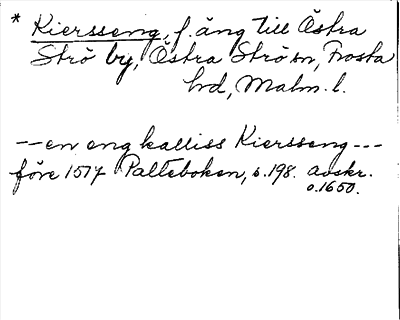 * Kiersseng, f. äng till Östra
Strö by, Östra Strö sn, Frosta
hd, Malm. l.
--en eng kalliss Kiersseng---
före 1517 Palteboken, s. 198. avskr.
o. 1650.